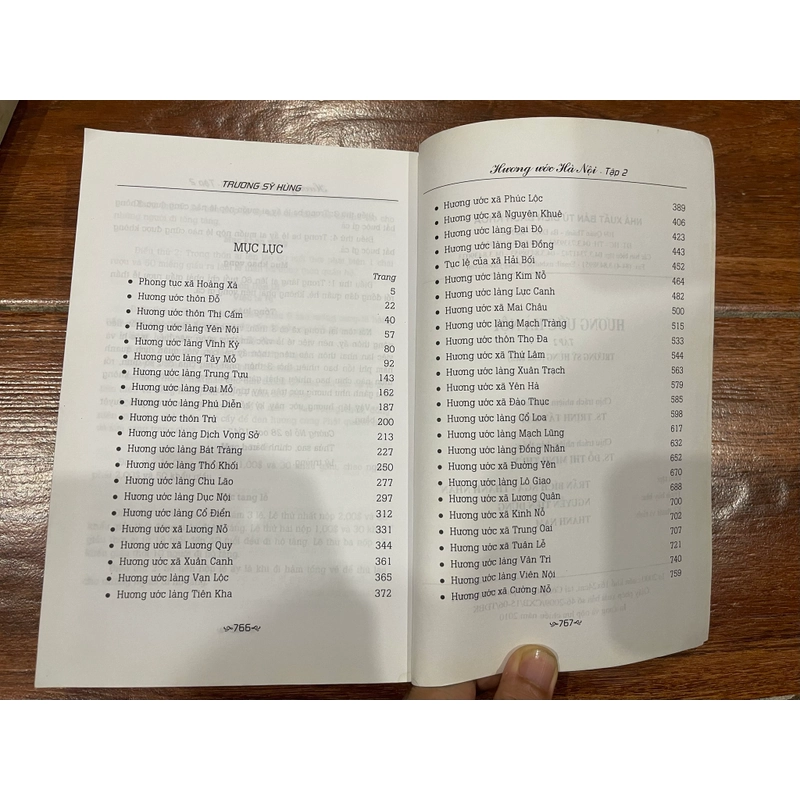 TRƯƠNG SỸ HÙNG
MỤC LỤC
Trang
• Phong tục xã Hoàng Xá 5
• Hương ước thôn Đỗ 22
• Hương ước thôn Thị Cấm 40
• Hương ước làng Yên Nội 57
• Hương ước làng Vĩnh Kỳ 80
• Hương ước làng Tây Mỗ 92
• Hương ước làng Trung Tựu 143
• Hương ước làng Đại Mỗ 162
• Hương ước làng Phú Diễn 187
• Hương ước thôn Trù 200
• Hương ước làng Dịch Vọng Sở 213
• Hương ước làng Bát Tràng 227
• Hương ước làng Thổ Khối 250
• Hương ước làng Chu Lão 277
• Hương ước làng Dục Nội 297
• Hương ước làng Cổ Điển 312
• Hương ước xã Lương Nỗ 331
• Hương ước xã Lương Quy 344
• Hương ước xã Xuân Canh 361
• Hương ước làng Vạn Lộc 365
• Hương ước làng Tiên Kha 372
766
Hương ước Hà Nội - Tập 2
• Hương ước xã Phúc Lộc 389
• Hương ước xã Nguyên Khuê 406
• Hương ước làng Đại Độ 423
• Hương ước làng Đại Đồng 443
• Tục lệ của xã Hải Bối 452
• Hương ước làng Kim Nỗ 464
• Hương ước làng Lực Canh 482
• Hương ước xã Mai Châu 500
• Hương ước làng Mạch Tràng 515
• Hương ước thôn Thọ Đa 533
• Hương ước xã Thử Lâm 544
• Hương ước làng Xuân Trạch 563
• Hương ước xã Yên Hà 579
• Hương ước xã Đào Thục 585
• Hương ước làng Cổ Loa 598
• Hương ước làng Mạch Lũng 617
• Hương ước làng Đồng Nhân 632
• Hương ước xã Đường Yên 652
• Hương ước làng Lô Giao 670
• Hương ước xã Lương Quân 688
• Hương ước xã Kinh Nỗ 700
• Hương ước xã Trung Oai 702
• Hương ước xã Tuân Lề 707
• Hương ước làng Vân Trì 721
• Hương ước làng Viên Nội 740
• Hương ước xã Cường Nỗ 759
767